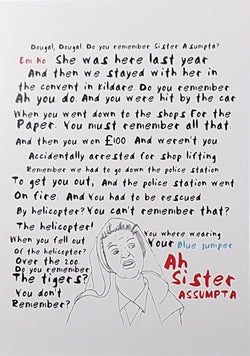 Dougal, Dougal Do you remember Sister Assumpta?
Em No She was here last year
And then we stayed with her in
the convent in Kildare. Do you remember
Ah you do. And you were hit by the car
When you went down to the shops For the
Paper. You must remember all that.
And then you won £100 And weren't you
Accidentally arrested for shop lifting
Remember we had to go down the police station
To get you out, And the police station went
On fire. And You had to be rescued
By helicopter? You can't remember that?
The helicopter!
When you fell out
Of the helicopter?
Over the Zoo.
Do you remember
The tigers?
You don't
Remember?
You where wearing
Your Blue Jumper.
Ah
Sister
ASSUMPTA